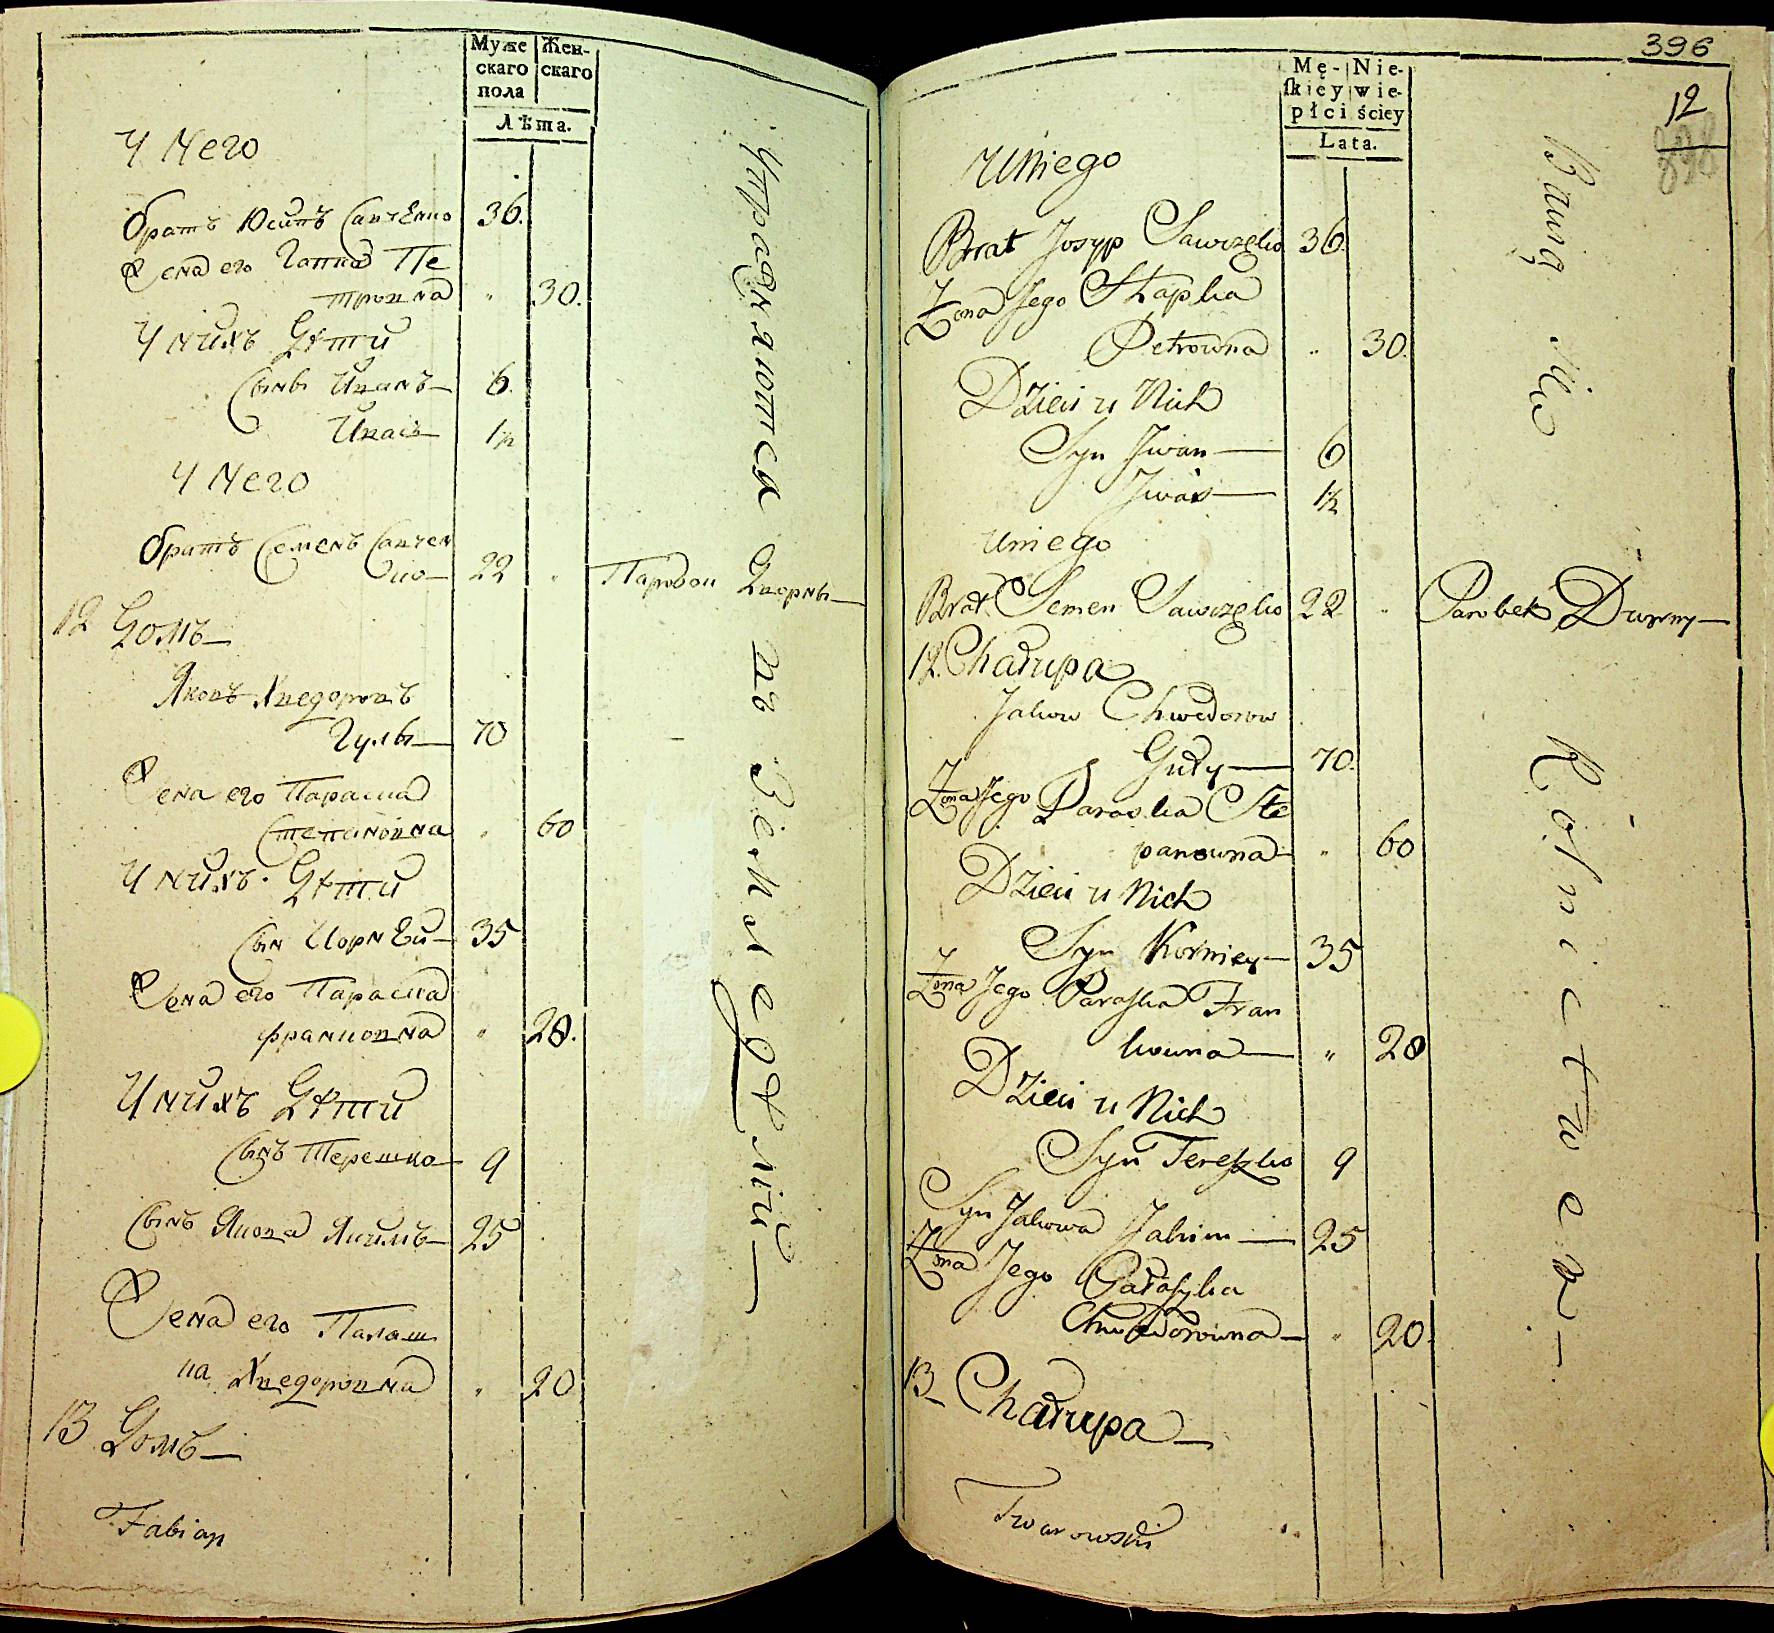 Муже
скаго
пола
Жен-
скаго
Лѣта.
У Него
братъ Юсипъ Савченко 36.
Жена его Гапка Пе
тровна „ 30.
У нихъ Дѣти
Сынъ Иванъ— 6.
Ивась— 1½
У Него
братъ Семенъ Савчен
ко— 22 „ Паробок Дворны—
12 Домъ—
Яковъ Хведоровъ
Гулы— 70
Жена его Параска
Степановна „ 60
У нихъ Дѣти
Сын Корнѣй— 35
Жена его Параска
франковна „ 28.
У нихъ Дѣти
Сынъ Терешко— 9
Сынъ Якова Якимъ— 25
Жена его Палаш
ка Хведоровна „ 20
13 Домъ—
Fabian
Упражняются въ Земледѣлии—
396
12
Mę-
skiey
płci
Nie-
wie-
ściey
Lata.
U Niego
Brat Josyp Sawczęko 36.
Żona Jego Hapka
Petrowna „ 30.
Dzieci u Nich
Syn Jwan— 6
Jwaś— 1½
U niego
Brat Semen Sawczęko 22 „ Parobek Dworny—
12. Chałupa
Jakow Chwedorow
Guły— 70.
Żona Jego Paraska Ste
panowna— „ 60
Dzieci u Nich
Syn Korniey— 35
Żona Jego Paraska Fran
kowna— „ 28
Dzieci u Nich
Syn Tereszko 9
Syn Jakowa Jakim— 25
Żona Jego Pałaszka
Chwedorowna— „ 20.
13— Chałupa—
Twarowski
Bawią się Rolnictwem—